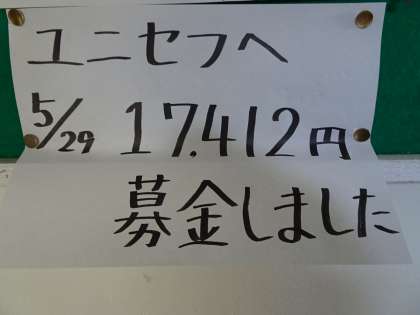 ユニセフへ
5/29 17.412円
募金しました